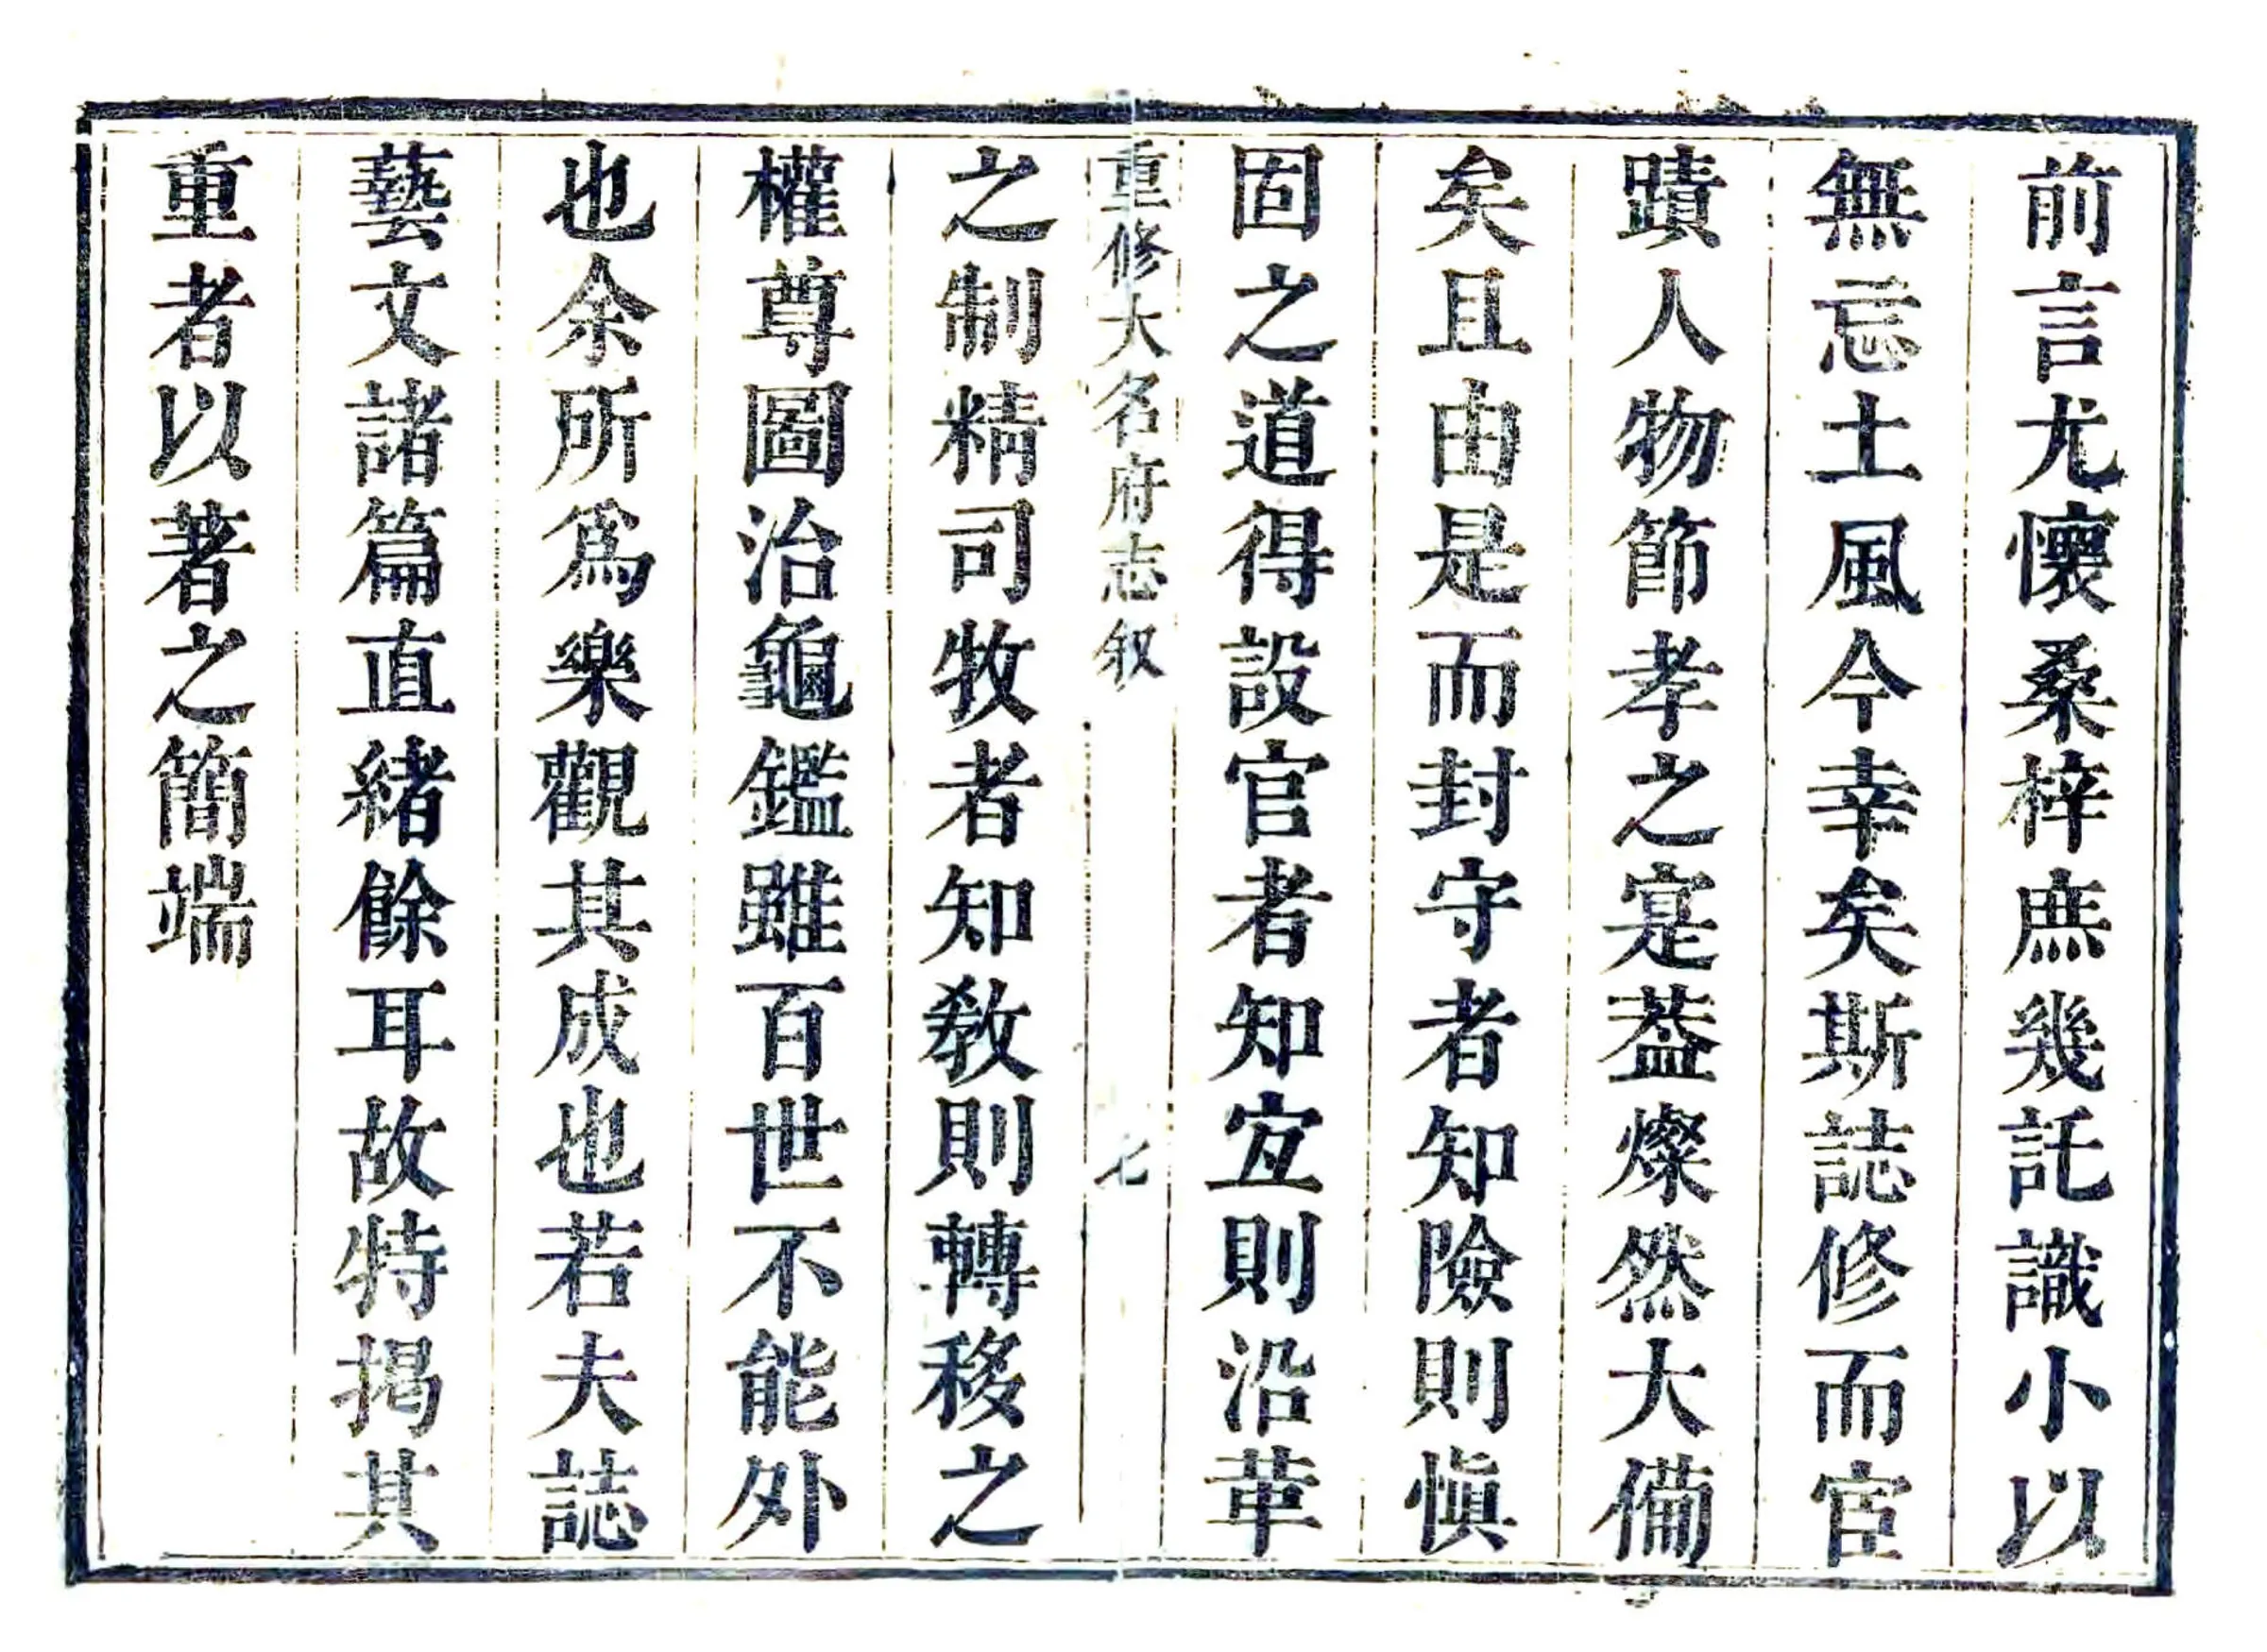 前言尤懷桑梓庶幾託識小以
無忘土風今幸矣斯誌修而宦
蹟人物節孝之寔葢燦然大備
矣且由是而封守者知險則慎
固之道得設官者知宐則沿革
重修大名府志叙
七
之制精司牧者知教則轉移之
權尊圖治龜鑑雖百世不能外
也余所爲樂觀其成也若夫誌
藝文諸篇直緒餘耳故特揭其
重者以著之簡端